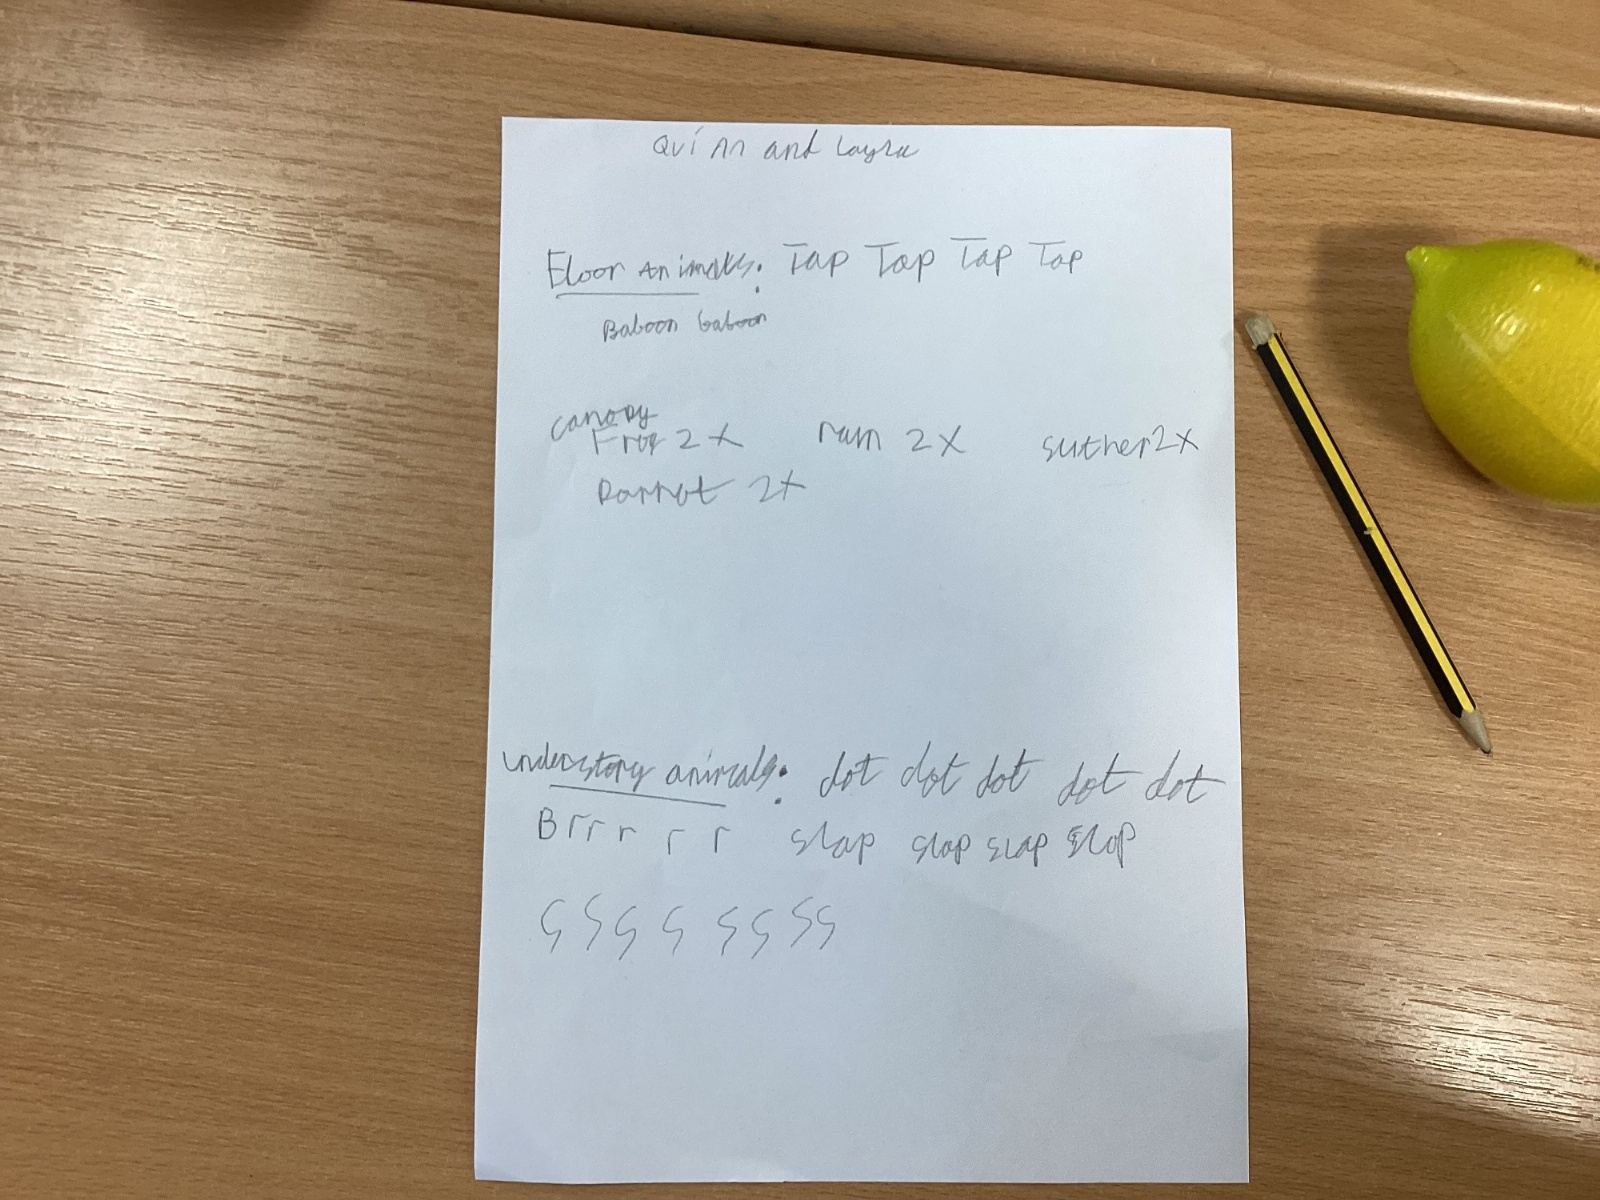 Quinn and Layla
Floor Animals: Tap Tap Tap Tap
Baboon baboon
canopy
Frog 2x rum 2x suther 2x
Parrot 2x
understory animals: dot dot dot dot dot
Brrr r r slap slap slap slap
S S S S S S S S